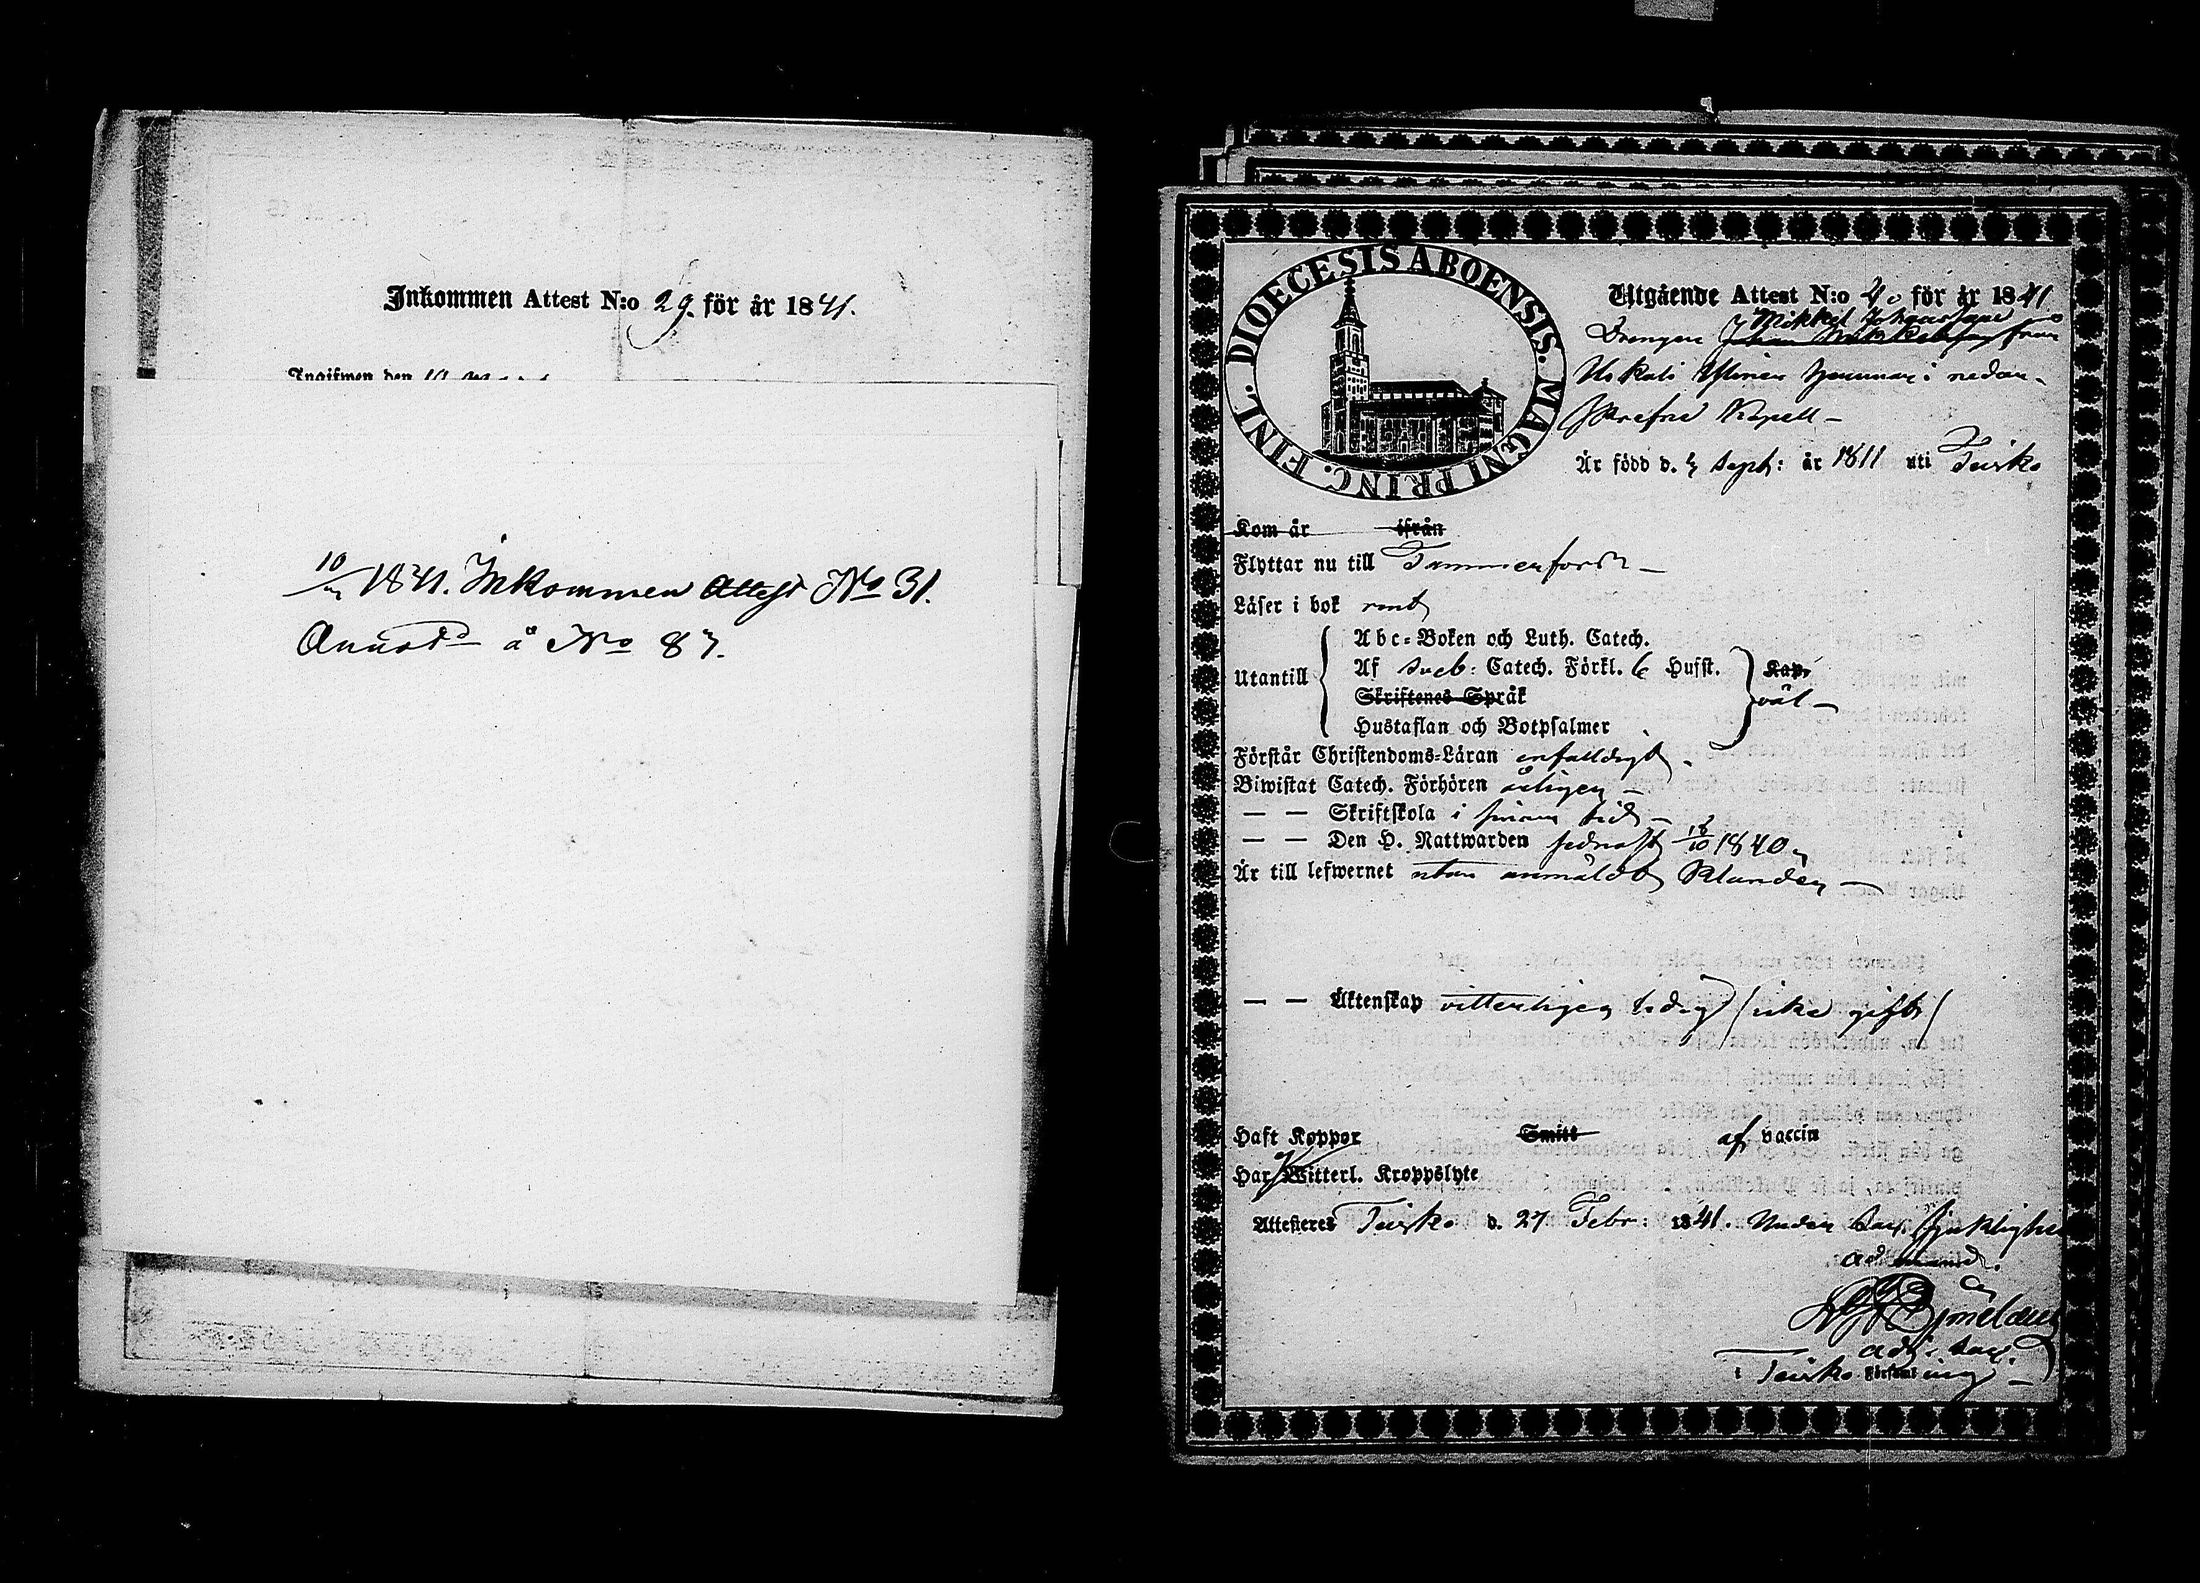 Inkommen Attest N:o 29. för år 1841.
Ingifwen den
10/3 1841. Inkommen Attest No 31.
Annot. å No 87.
DIOECESIS ABOENSIS. MAGNI PRINC. FINL.
Utgående Attest N:o 40 för år 1841
Mikkel Johansson
Drengen från
Uskali i nedan-
skrefne Kapell –
Är född d. sept: år 1811 uti Teisko
Kom år ifrån
Flyttar nu till Tammerfors –
Läser i bok rent
Utantill
Abc-Boken och Luth. Catech.
Af Sveb: Catech. Förkl. 6 Hufst. Kap.
Skriftenes Språk väl –
Hustaflan och Botpsalmer
Förstår Christendoms-Läran enfaldigt.
Biwistat Catech. Förhören årligen –
— — Skriftskola i sinom tid –
— — Den H. Nattwarden sednast 18/10 1840
Är till lefwernet utan anmäldt klander –
— — Äktenskap vitterligen ledig (icke gift)
Haft Koppor Smitt af vaccin
Har ej Witterl. Kroppslyte
Attesteras Teisko d. 27 Febr: 1841. Under Sac. sjuklighet
adj. i Sacr.
i Teisko Församling –